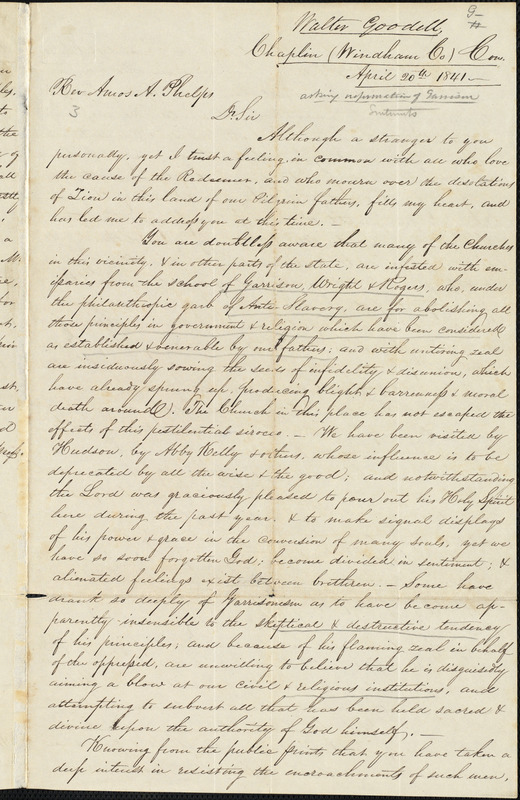 9-
Walter Goodell,
Chaplin (Windham Co) Con.
April 20th 1841.—
asking information of Garrison
Sentiments
Rev Amos A. Phelps
3
Dr Sir
Although a stranger to you
personally, yet I trust a feeling, in common with all who love
the cause of the Redeemer, and who mourn over the desolations
of Zion in this land of our Pilgrim fathers, fills my heart, and
has led me to address you at this time. —
You are doubtless aware that many of the Churches
in this vicinity, & in other parts of the State, are infested with em-
issaries from the school of Garrison, Wright & Rogers, who, under
the philanthropic garb of Anti-Slavery, are for abolishing all
those principles in government & religion which have been considered
as established & venerable by our fathers; and with untiring zeal
are insidiously sowing the seeds of infidelity & disunion, which
have already sprung up, producing blight & barrenness & moral
death around. The Church in this place has not escaped the
effects of this pestilential sirocco. — We have been visited by
Hudson, by Abby Kelly & others, whose influence is to be
deprecated by all the wise & the good; and notwithstanding
the Lord was graciously pleased to pour out his Holy Spirit
here during the past year, & to make signal displays
of his power & grace in the conversion of many souls, yet we
have so soon forgotten God; become divided in sentiment; &
alienated feelings exist between brethren. — Some have
drank so deeply of Garrisonism as to have become ap-
parently insensible to the skeptical & destructive tendency
of his principles; and because of his flaming zeal in behalf
of the oppressed, are unwilling to believe that he is disguisedly
aiming a blow at our civil & religious institutions, and
attempting to subvert all that has been held sacred &
divine upon the authority of God himself. —
Knowing from the public prints that you have taken a
deep interest in resisting the encroachments of such men,